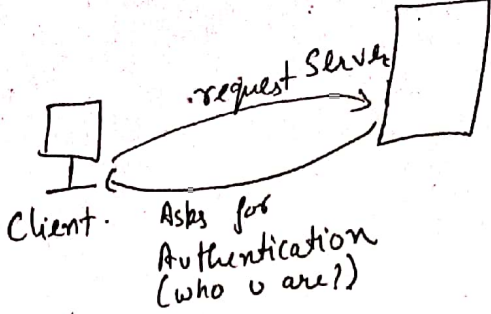 request
Server
Client.
Asks for
Authentication
(who u are?)